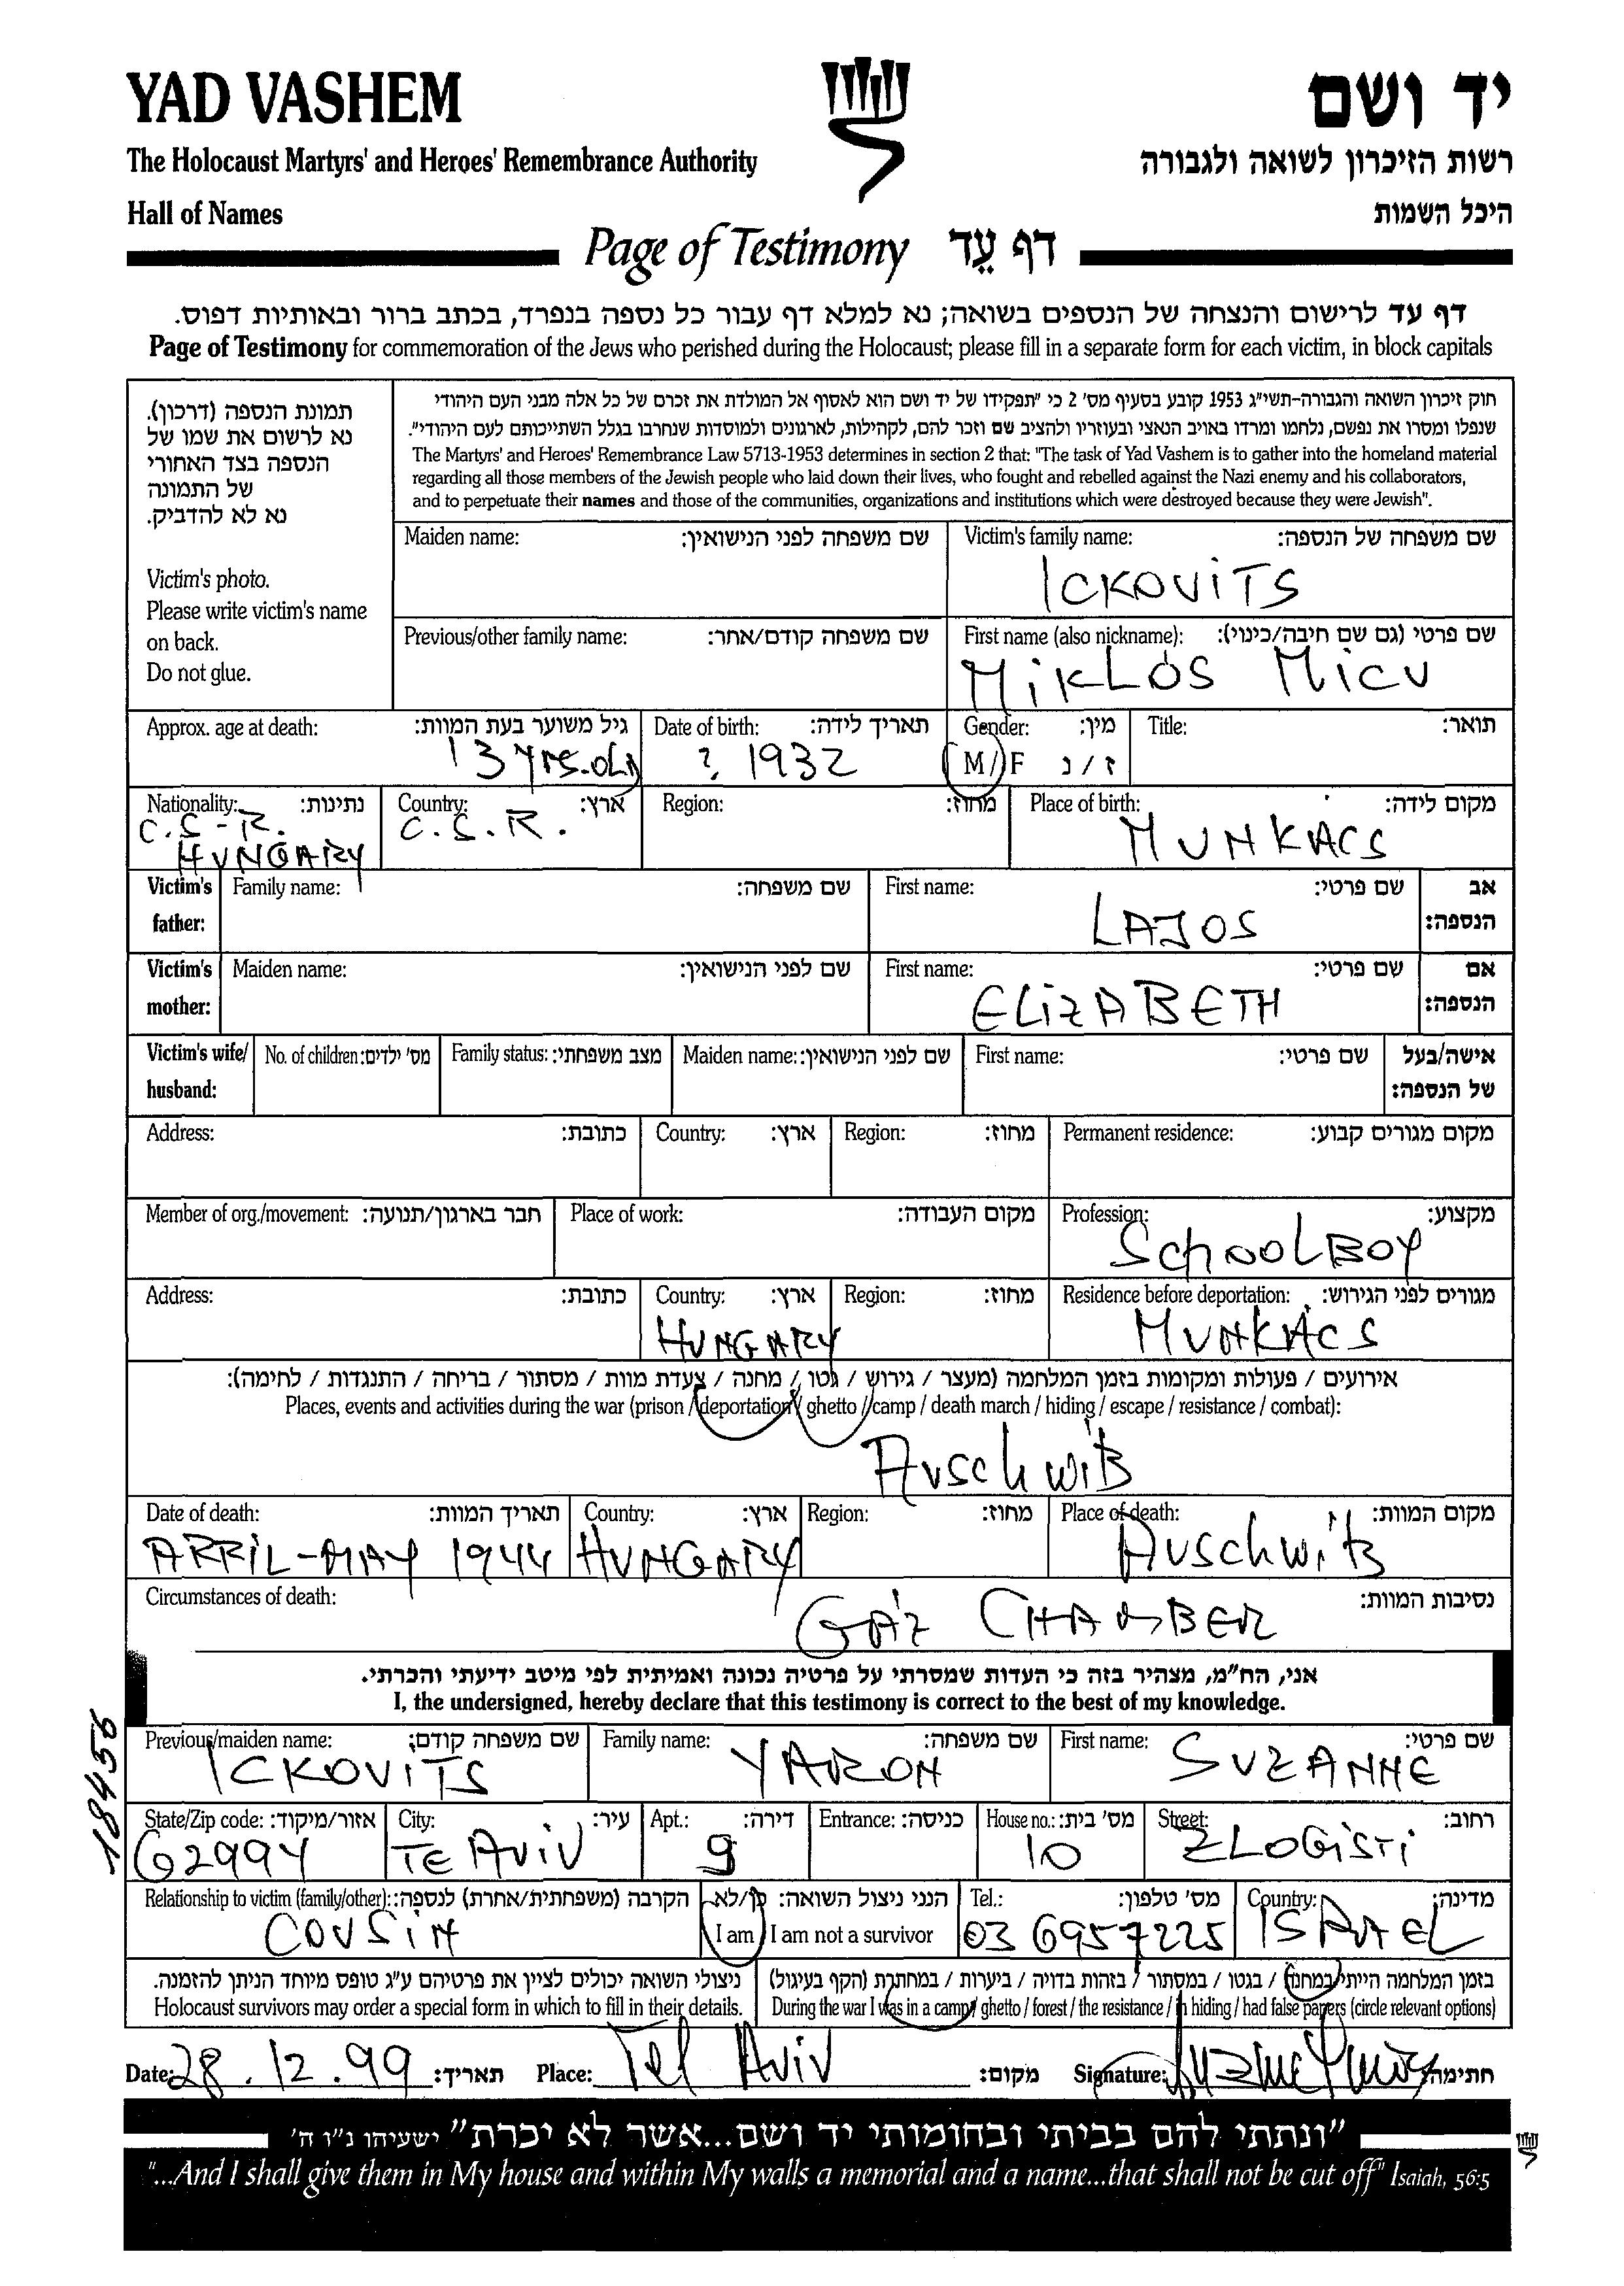 YAD VASHEM
יד ושם
The Holocaust Martyrs' and Heroes' Remembrance Authority
רשות הזיכרון לשואה ולגבורה
Hall of Names
היכל השמות
Page of Testimony דף עֵד
דף עד לרישום והנצחה של הנספים בשואה; נא למלא דף עבור כל נספה בנפרד, בכתב ברור ובאותיות דפוס.
Page of Testimony for commemoration of the Jews who perished during the Holocaust; please fill in a separate form for each victim, in block capitals
תמונת הנספה (דרכון).
נא לרשום את שמו של
הנספה בצד האחורי
של התמונה
נא לא להדביק.
Victim's photo.
Please write victim's name
on back.
Do not glue.
חוק זיכרון השואה והגבורה-תשי"ג 1953 קובע בסעיף מס' 2 כי "תפקידו של יד ושם הוא לאסוף אל המולדת את זכרם של כל אלה מבני העם היהודי
שנפלו ומסרו את נפשם, נלחמו ומרדו באויב הנאצי ובעוזריו ולהציב שם וזכר להם, לקהילות, לארגונים ולמוסדות שנחרבו בגלל השתייכותם לעם היהודי".
The Martyrs' and Heroes' Remembrance Law 5713-1953 determines in section 2 that: "The task of Yad Vashem is to gather into the homeland material
regarding all those members of the Jewish people who laid down their lives, who fought and rebelled against the Nazi enemy and his collaborators,
and to perpetuate their names and those of the communities, organizations and institutions which were destroyed because they were Jewish".
Maiden name: שם משפחה לפני הנישואין:
Victim's family name: שם משפחה של הנספה:
ICKOVITS
Previous/other family name: שם משפחה קודם/אחר:
First name (also nickname): שם פרטי (גם שם חיבה/כינוי):
MIKLÓS MICU
Approx. age at death: גיל משוער בעת המוות:
13 yrs. old
Date of birth: תאריך לידה:
?, 1932
Gender: מין:
M / F ז / נ
Title: תואר:
Nationality: נתינות:
C.S-R.
HUNGARY
Country: ארץ:
C.S.R.
Region: מחוז:
Place of birth: מקום לידה:
MUNKÁCS
Victim's father:
Family name: שם משפחה:
First name: שם פרטי:
LAJOS
אב הנספה:
Victim's mother:
Maiden name: שם לפני הנישואין:
First name: שם פרטי:
ELIZABETH
אם הנספה:
Victim's wife/ husband:
No. of children: מס' ילדים:
Family status: מצב משפחתי:
Maiden name: שם לפני הנישואין:
First name: שם פרטי:
אישה/בעל של הנספה:
Address: כתובת:
Country: ארץ:
Region: מחוז:
Permanent residence: מקום מגורים קבוע:
Member of org./movement: חבר בארגון/תנועה:
Place of work: מקום העבודה:
Profession: מקצוע:
SCHOOLBOY
Address: כתובת:
Country: ארץ:
HUNGARY
Region: מחוז:
Residence before deportation: מגורים לפני הגירוש:
MUNKÁCS
אירועים / פעולות ומקומות בזמן המלחמה (מעצר / גירוש / גטו / מחנה / צעדת מוות / מסתור / בריחה / התנגדות / לחימה):
Places, events and activities during the war (prison / deportation / ghetto / camp / death march / hiding / escape / resistance / combat):
Auschwitz
Date of death: תאריך המוות:
APRIL-MAY 1944
Country: ארץ:
HUNGARY
Region: מחוז:
Place of death: מקום המוות:
Auschwitz
Circumstances of death: נסיבות המוות:
GÁZ CHAMBER
אני, הח"מ, מצהיר בזה כי העדות שמסרתי על פרטיה נכונה ואמיתית לפי מיטב ידיעתי והכרתי.
I, the undersigned, hereby declare that this testimony is correct to the best of my knowledge.
184356
Previous/maiden name: שם משפחה קודם:
ICKOVITS
Family name: שם משפחה:
YARON
First name: שם פרטי:
SUZANNE
State/Zip code: אזור/מיקוד:
62994
City: עיר:
TE AVIV
Apt.: דירה:
9
Entrance: כניסה:
House no.: מס' בית:
10
Street: רחוב:
ZLOGISTI
Relationship to victim (family/other): הקרבה (משפחתית/אחרת) לנספה:
COUSIN
הנני ניצול השואה: כן/לא
I am / I am not a survivor
Tel.: מס' טלפון:
03 6957225
Country: מדינה:
ISRAEL
ניצולי השואה יכולים לציין את פרטיהם ע"ג טופס מיוחד הניתן להזמנה.
Holocaust survivors may order a special form in which to fill in their details.
בזמן המלחמה הייתי במחנה / בגטו / במסתור / בזהות בדויה / ביערות / במחתרת (הקף בעיגול)
During the war I was in a camp / ghetto / forest / the resistance / in hiding / had false papers (circle relevant options)
Date: 28.12.99 תאריך:
Place: Tel Aviv מקום:
Signature: חתימה:
"ונתתי להם בביתי ובחומותי יד ושם...אשר לא יכרת" ישעיהו נ"ו ה'
"...And I shall give them in My house and within My walls a memorial and a name...that shall not be cut off" Isaiah, 56:5